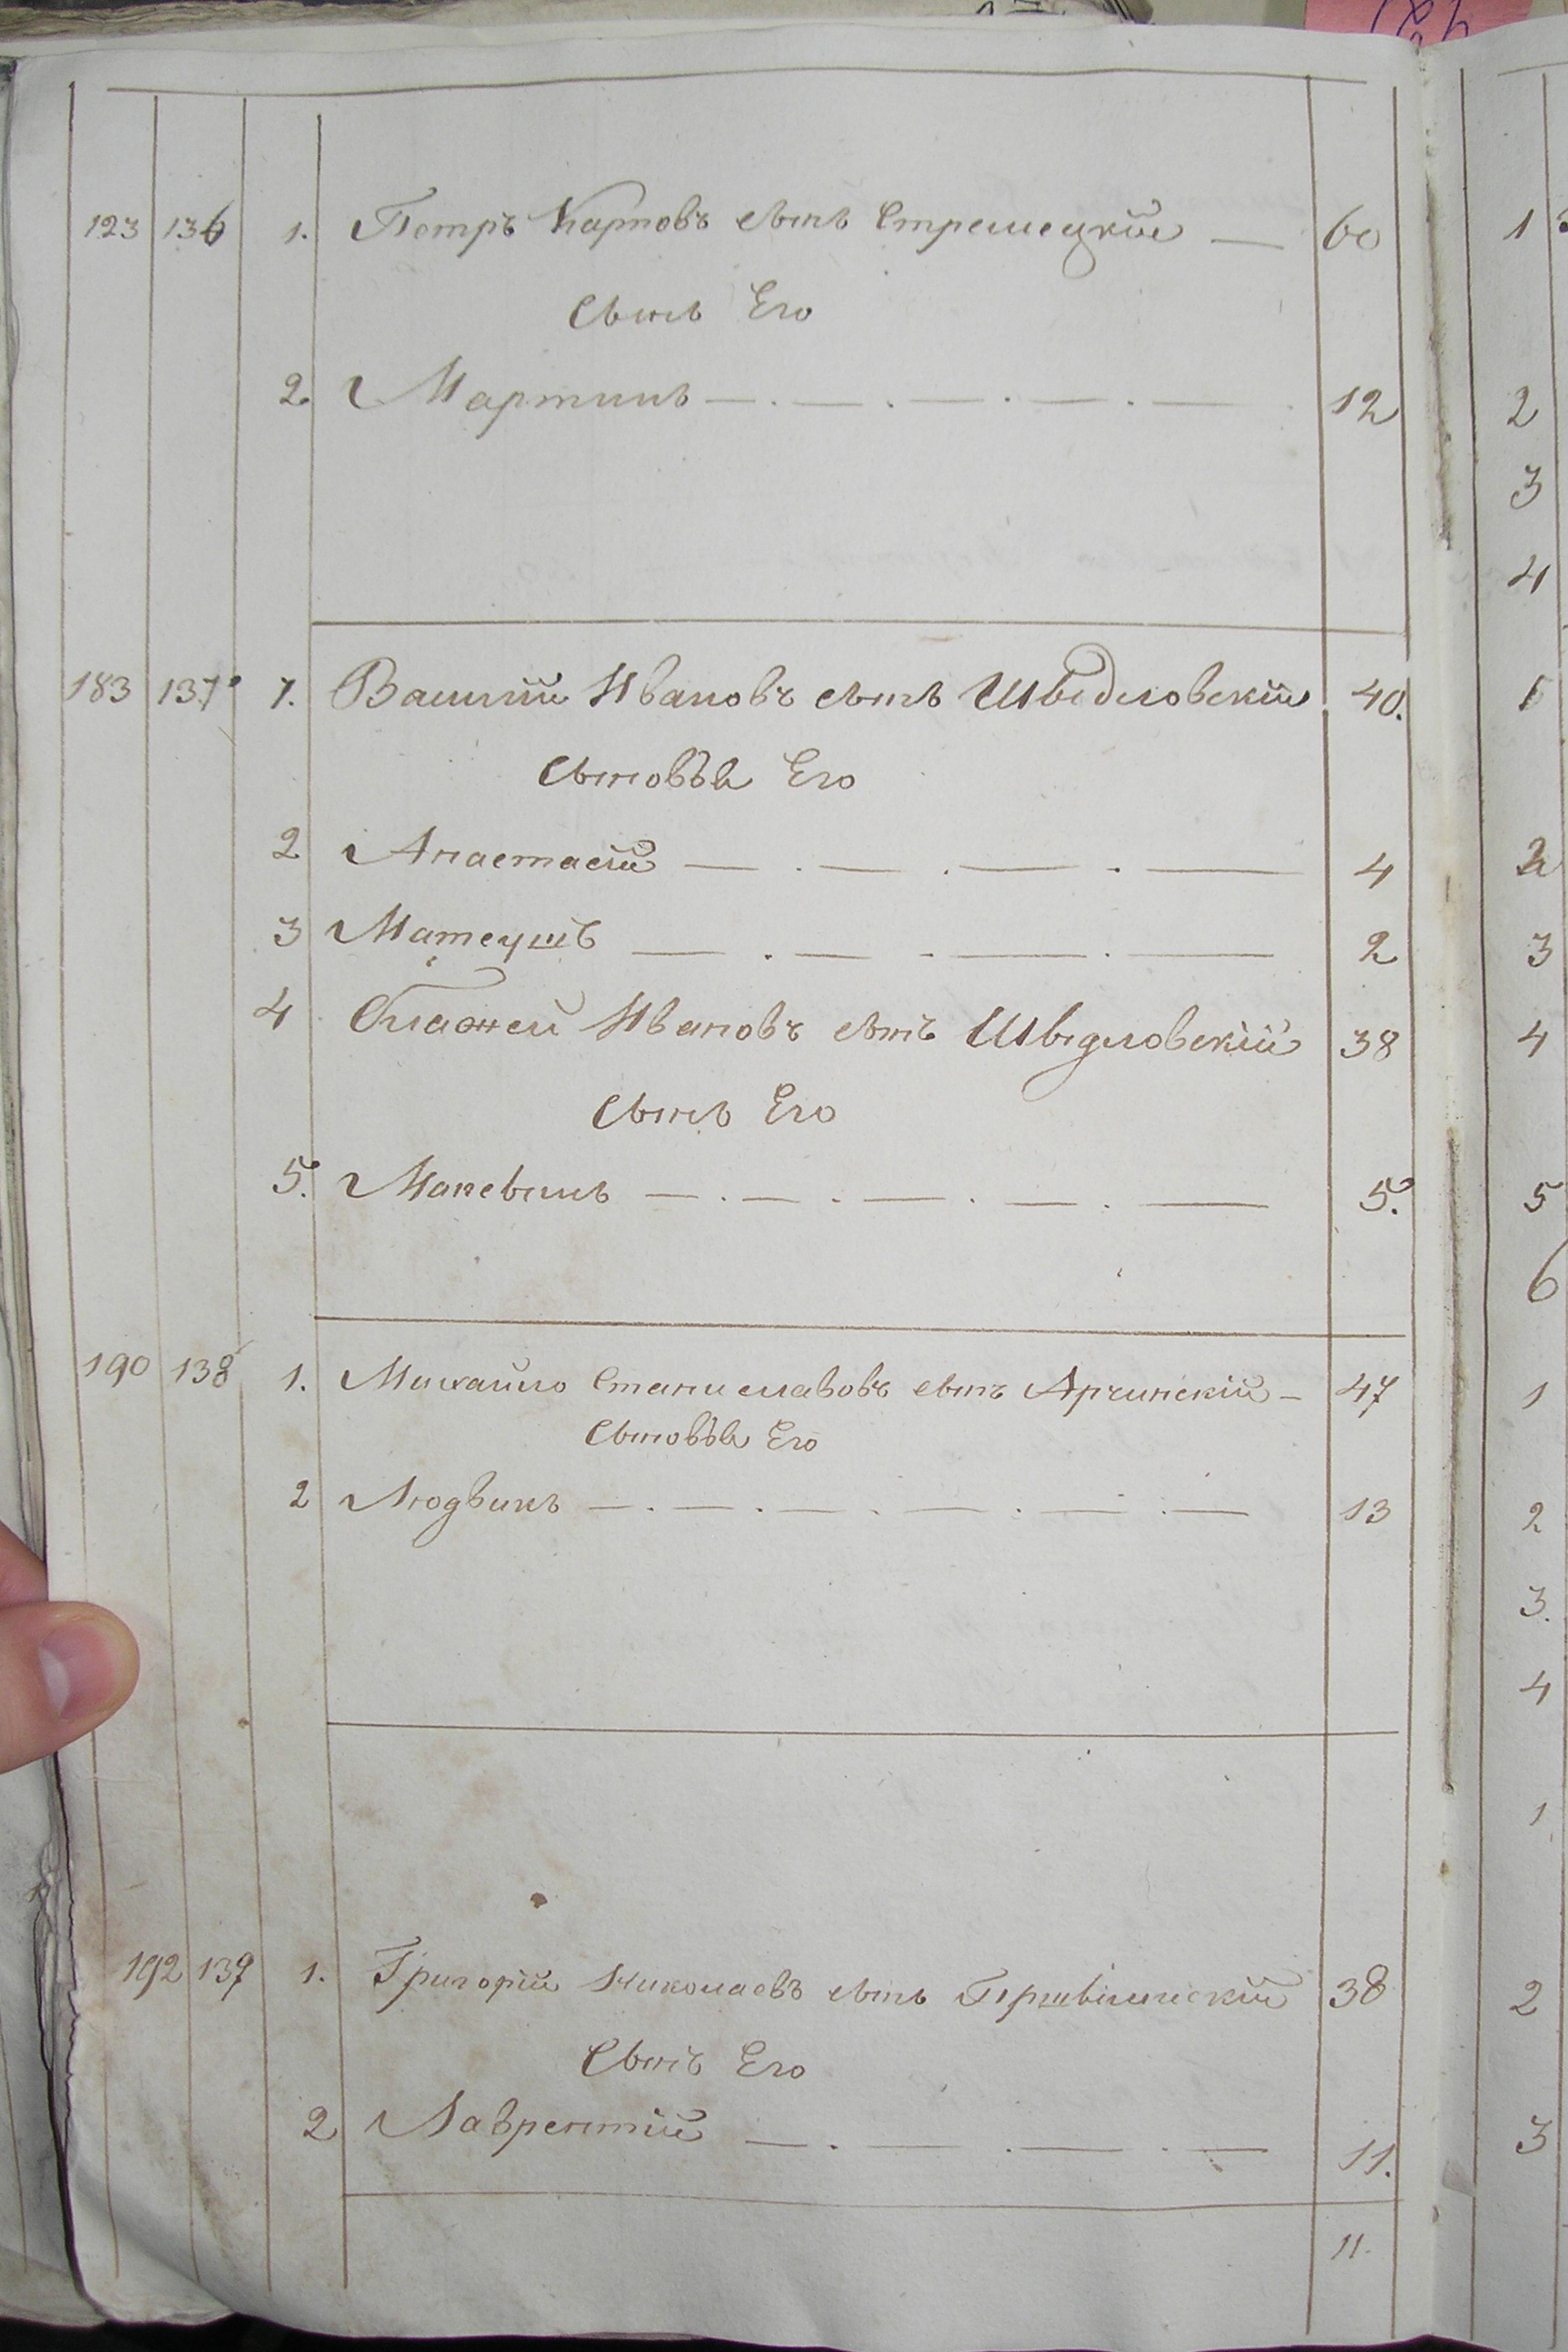 123 136 1. Петръ Карповъ сынъ Стрешецкій — 60
Сынъ Его
2. Мартинъ — . — . — . — . — 12
183 137 1. Василій Ивановъ сынъ Шведловскій 40.
Сыновья Его
2 Анастасій — . — . — . — 4
3 Матеушъ — . — . — . — 2
4 Блажей Ивановъ сынъ Шведловскій 38
Сынъ Его
5. — . — . — . — . — 5.
190 138 1. Михайло Станиславовъ сынъ Арчинскій — 47
Сыновья Его
2 Людвикъ — . — . — . — . — . — 13
192 139 1. Григорій Николаевъ сынъ 38
Сынъ Его
2 Лаврентій — . — . — . — 11.
11.
1
2
3
4
1
2
3
4
5
6
1
2
3.
4
1
2
3